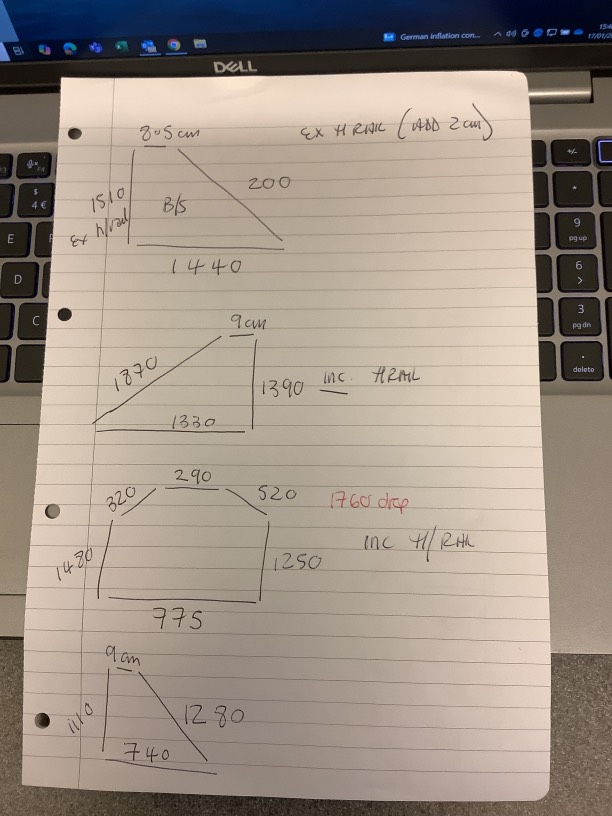 German inflation con...
DELL
8.5cm
EX H RAIL (ADD 2cm)
1510
Ex h/rail
B/S
200
1440
9cm
1870
1390 inc. HRAIL
1330
290
320
520
1760 drop
inc H/RAIL
1480
1250
775
9cm
1110
1280
740
$
4 €
E
D
C
+/-
*
9
pg up
6
>
3
pg dn
.
delete